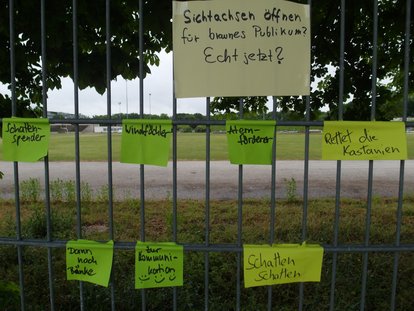 Sichtachsen öffnen
für braunes Publikum?
Echt jetzt?
Schatten-
spender
Windfächler
Atem-
förderer
Rettet die
Kastanien
Dann noch
Bänke
zur
Kommuni-
kation
Schatten
Schatten